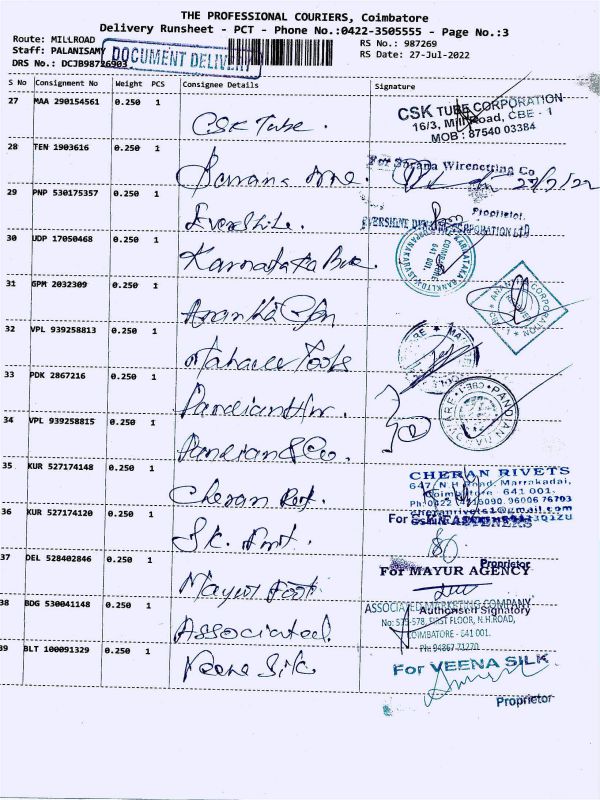 THE PROFESSIONAL COURIERS, Coimbatore
Delivery Runsheet - PCT - Phone No.:0422-3505555 - Page No.:3
Route: MILLROAD
RS No.: 987269
Staff: PALANISAMY
RS Date: 27-Jul-2022
DOCUMENT DELIVERY
DRS No.: DCJB98726903
S No Consignment No Weight PCS Consignee Details Signature
27 MAA 290154561 0.250 1
CSK Tube.
CSK TUBE CORPORATION
16/3, Mill Road, CBE - 1
MOB : 87540 03384
28 TEN 1903616 0.250 1
For Sarana Wirenetting Co
27/7/22
Proprietor
29 PNP 530175357 0.250 1
30 UDP 17050468 0.250 1
Karnataka
KARNATAKA BANK LTD
COIMBATORE
641 001.
31 GPM 2032309 0.250 1
CORPORATION
32 VPL 939258813 0.250 1
Mahaveer Tools
33 PDK 2867216 0.250 1
Pandian H/w.
PANDIAN HARDWARE
34 VPL 939258815 0.250 1
Pandian & Co.
35 KUR 527174148 0.250 1
Cheran
CHERAN RIVETS
647, N.H Road, Marrakadai,
Coimbatore - 641 001.
96006 76703
cheranrivets1@gmail.com
36 KUR 527174120 0.250 1
S.K.
For
Proprietor
37 DEL 528402846 0.250 1
Mayur
For MAYUR AGENCY
Authorised Signatory
38 BDG 530041148 0.250 1
Associated.
ASSOCIATED MARKETING COMPANY
No: 575-578, FIRST FLOOR, N.H.ROAD,
COIMBATORE - 641 001.
Ph: 94867 71270
39 BLT 100091329 0.250 1
Veena Silk.
For VEENA SILK
Proprietor